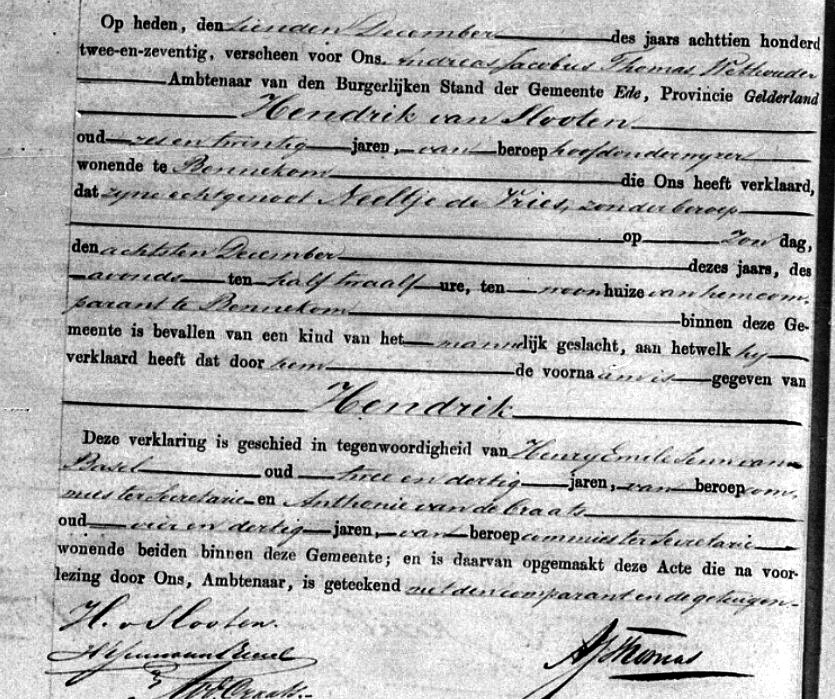 Op heden, den tienden December des jaars achttien honderd
twee-en-zeventig, verscheen voor Ons, Andreas Jacobus Thomas, Wethouder
Ambtenaar van den Burgerlijken Stand der Gemeente Ede, Provincie Gelderland
Hendrik van Slooten
oud zes en twintig jaren, van beroep hoofdonderwyzer
wonende te Bennekom die Ons heeft verklaard,
dat zyne echtgenoot Neeltje de Vries, zonder beroep
op Zon dag,
den achtsten December dezes jaars, des
avonds ten half twaalf ure, ten woonhuize van hem com,
parant te Bennekom binnen deze Ge-
meente is bevallen van een kind van het mannelijk geslacht, aan hetwelk hy
verklaard heeft dat door hem de voornaam is gegeven van
Hendrik
Deze verklaring is geschied in tegenwoordigheid van Henry Emile Senn van
Basel oud twee en dertig jaren, van beroep com,
mies ter Secretarie en Anthonie van de Craats
oud vier en dertig jaren, van beroep commies ter Secretarie
wonende beiden binnen deze Gemeente; en is daarvan opgemaakt deze Acte die na voor-
lezing door Ons, Ambtenaar, is geteekend met den comparant en de getuigen.
H. v Slooten.
AJThomas